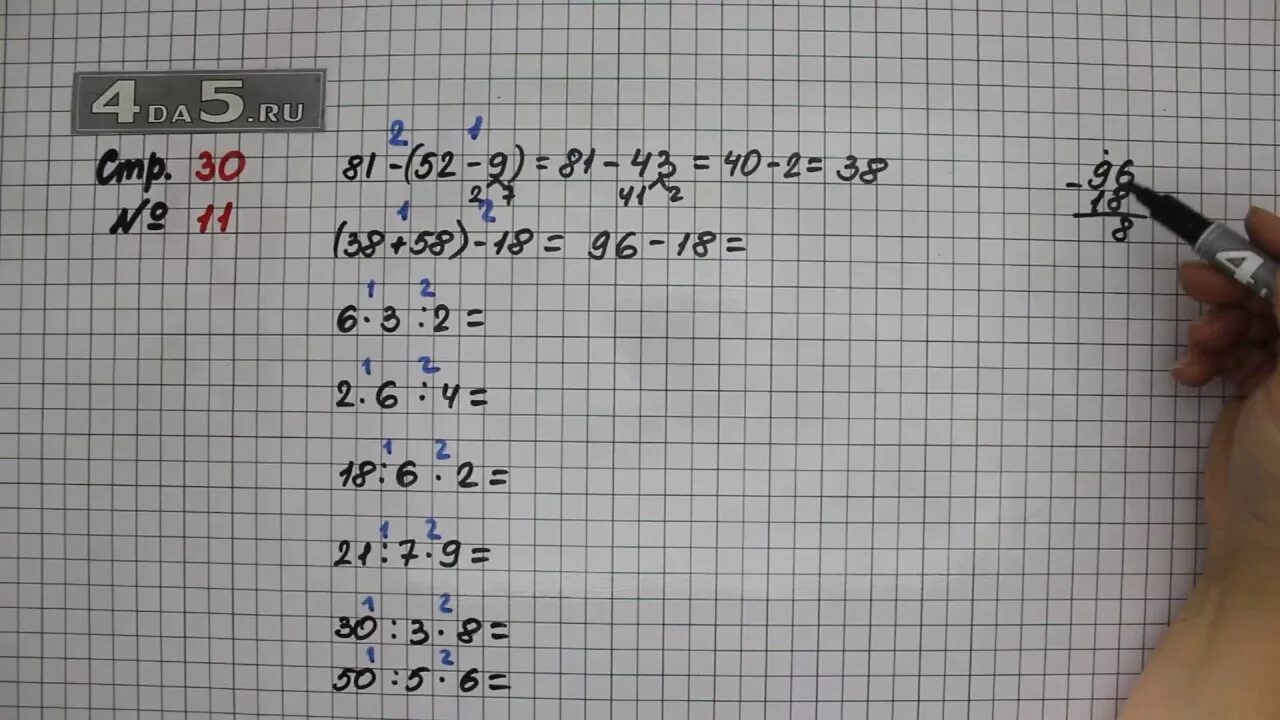 4DA5.RU
Стр. 30
№ 11
2 1
81-(52-9)=81-43=40-2=38
2 7 41 2
1 2
(38+58)-18= 96-18=
1 2
6·3:2=
1 2
2·6:4=
1 2
18:6·2=
1 2
21:7·9=
1 2
30:3·8=
1 2
50:5·6=
96
-
18
8
4